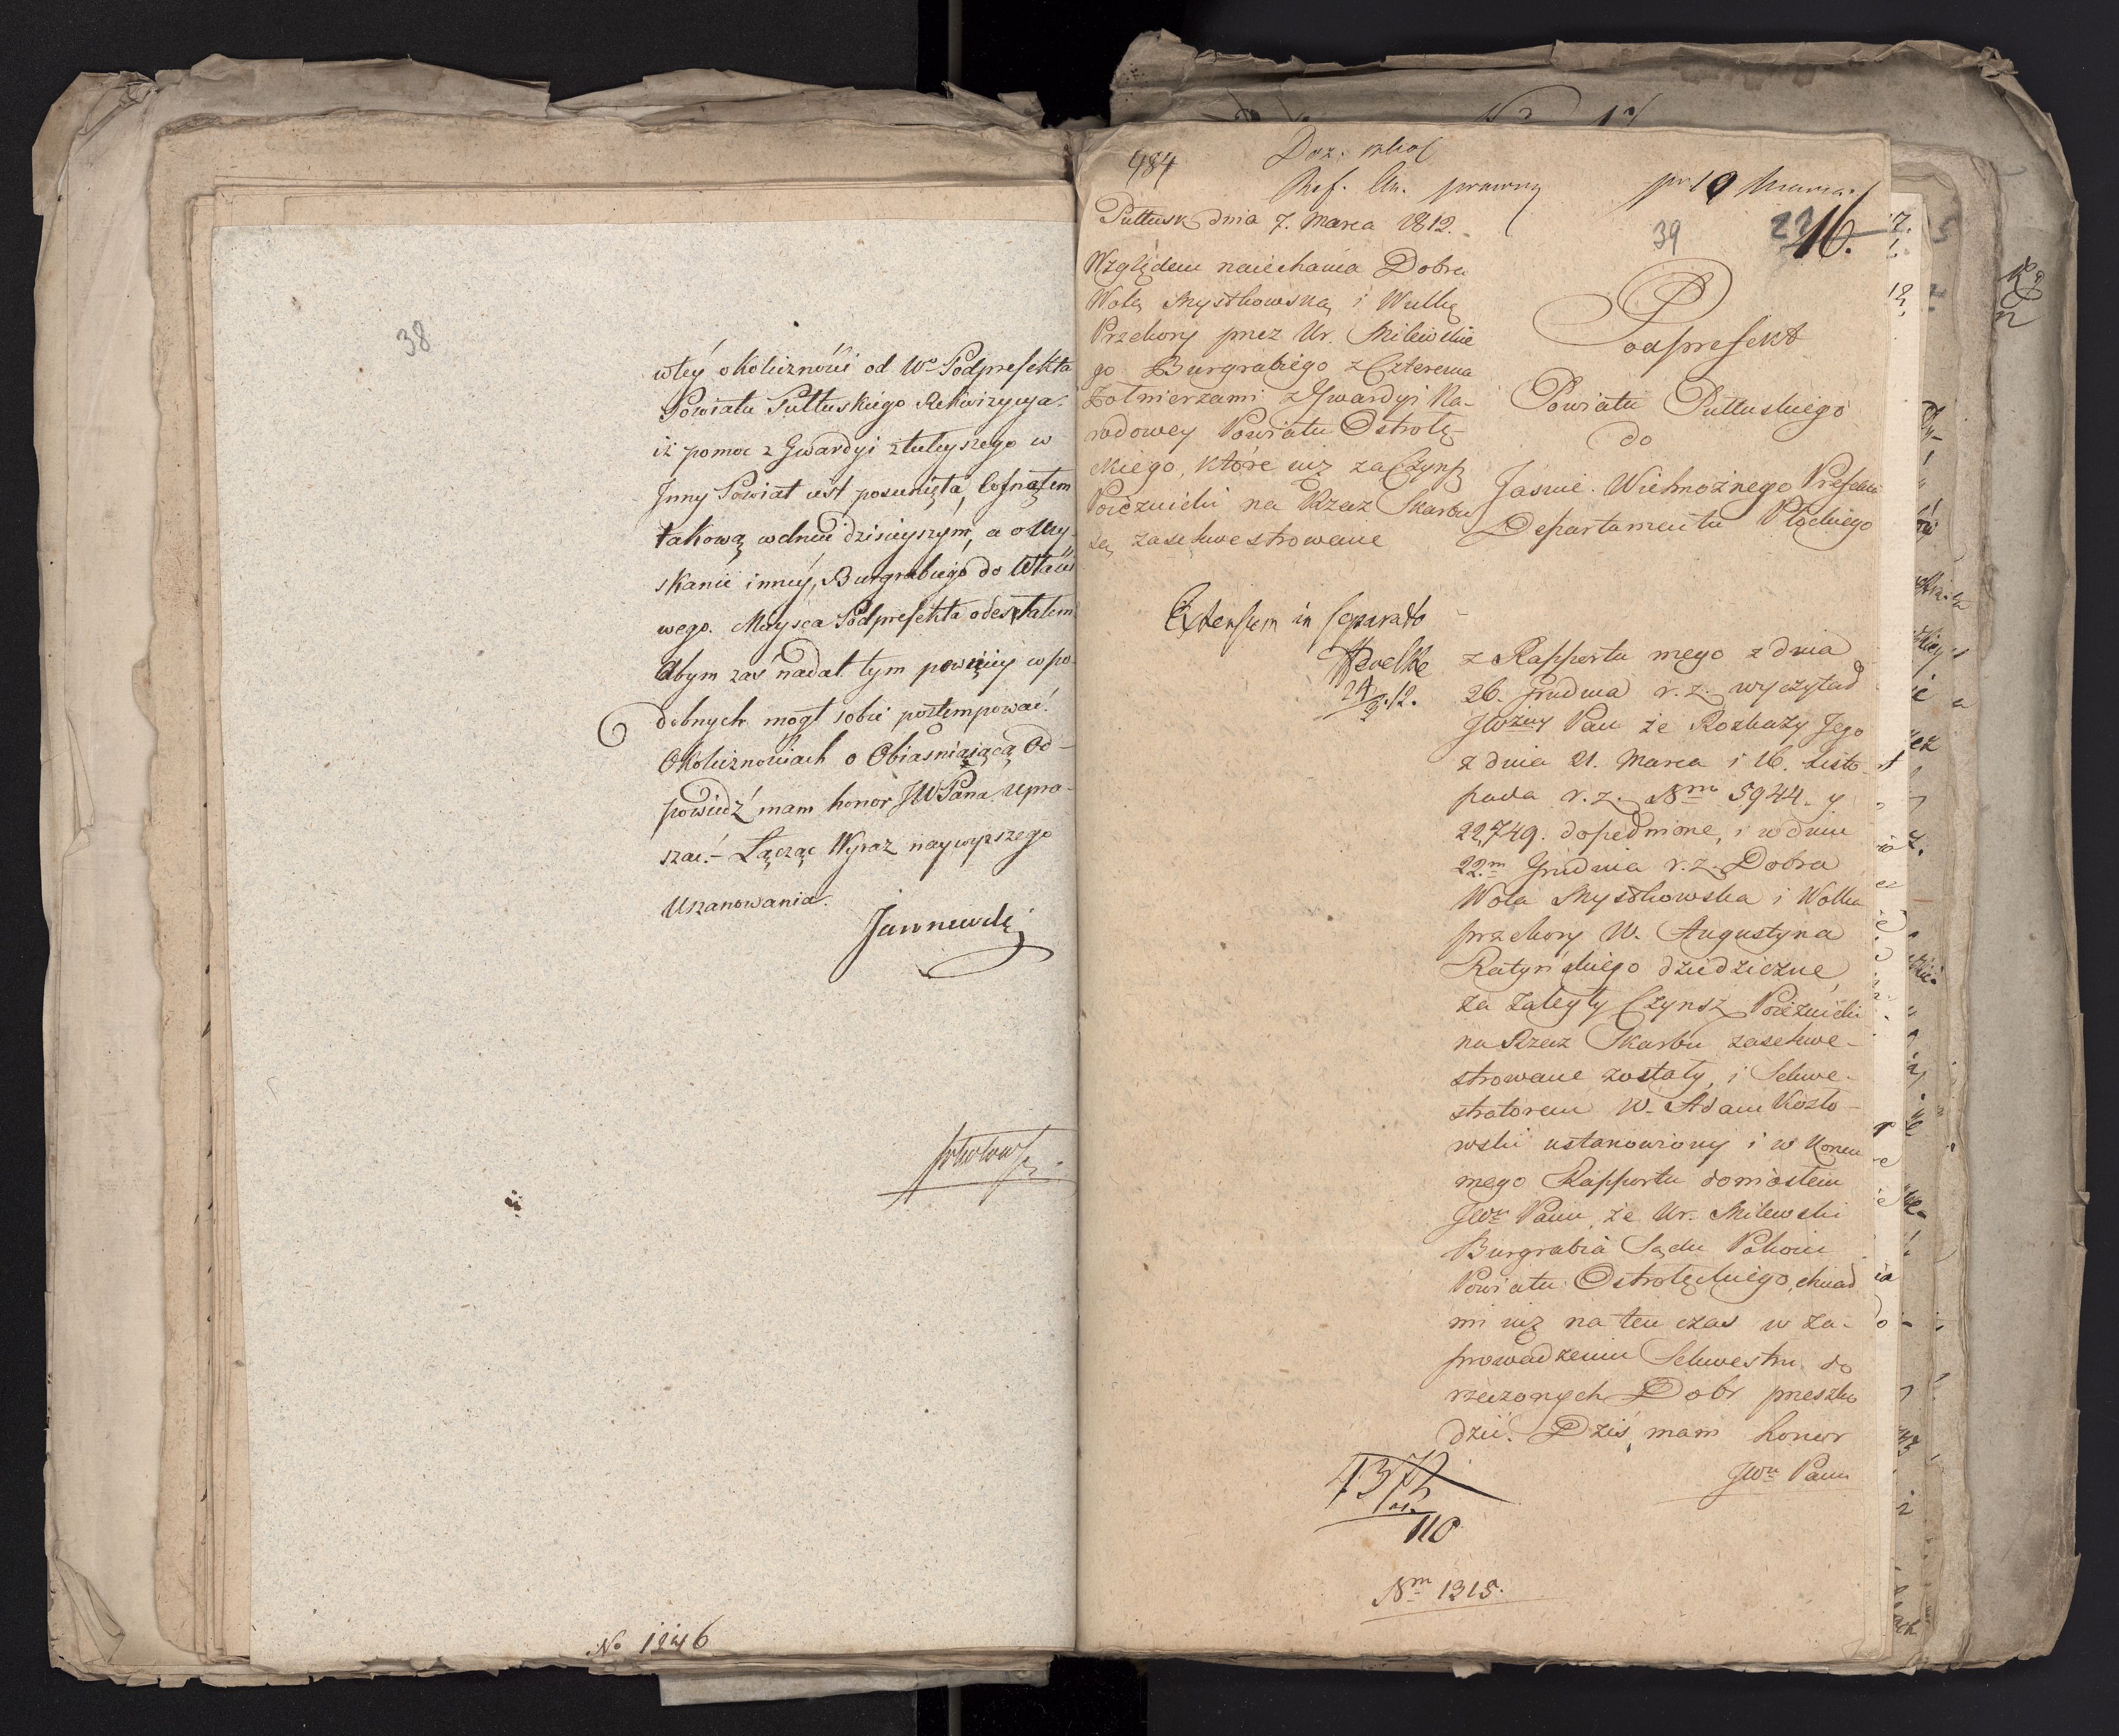 38
wtéy okoliczności od Wo Podprefekta
Powiatu Pułtuskiego Rekwizycya.
iż pomoc z Gwardyi ztuteyszego w
Jnny Powiat iest posunięta, Cofnąłem
takową w dniu dzisieyszym, a o Uzy-
skanie innéy, Burgrabiego do Właści
wego Mieysca Podprefekta odesłałem
Abym zaś nadal tym pewniéy w po-
dobnych mogł sobie postempować
Okolicznościach o Obiasniaiącą Od-
powiedź mam honor JWPana Upra-
szać.- Łącząc Wyraz naywyższego
Uszanowania.
No 1246
984
Pułtusk dnia 7. Marca 1812.
39
16.
Względem naiechania Dobra
Wolą Mystkowską i Wulkę
Przekory przez Ur. Milewskie
go Burgrabiego z Czterema
Żołnierzami z Gwardyi Na-
rodowey Powiatu Ostrołę-
ckiego, które iuż za Czynsz
na Rzecz Skarbu
są zasekwestrowane
Podprefekt
Powiatu Pułtuskiego
do
Jaśnie Wielmożnego Prefekta
Departamentu Płockiego
Extensum in separato
z Rapportu mego z dnia
26. Grudnia r. z. wyczytał
JWżny Pan że Rozkazy Jego
z dnia 21. Marca i 16. Listo-
pada r. z. Nrm 5944. y
22,749. dopełnione, i w dniu
22m Grudnia r. z. Dobra
Wola Mystkowska i Wolka
przekory W. Augustyna
Ratyńskiego dziedziczne,
za zaległy Czynsz
na Rzecz Skarbu zasekwe-
strowane zostały, i Sekwe-
stratorem W. Adam Kozło-
wski ustanowiony i w Koncu
mego Rapportu doniosłem
JWu Panu, że Ur. Milewski
Burgrabia Sądu Pokoiu
Powiatu Ostrołęckiego, chciał
mi iuż na ten czas w za-
prowadzeniu Sekwestru do
rzeczonych Dobr przeszko
dzić. Dziś mam honor
JWu Panu
110
Nrm 1315.